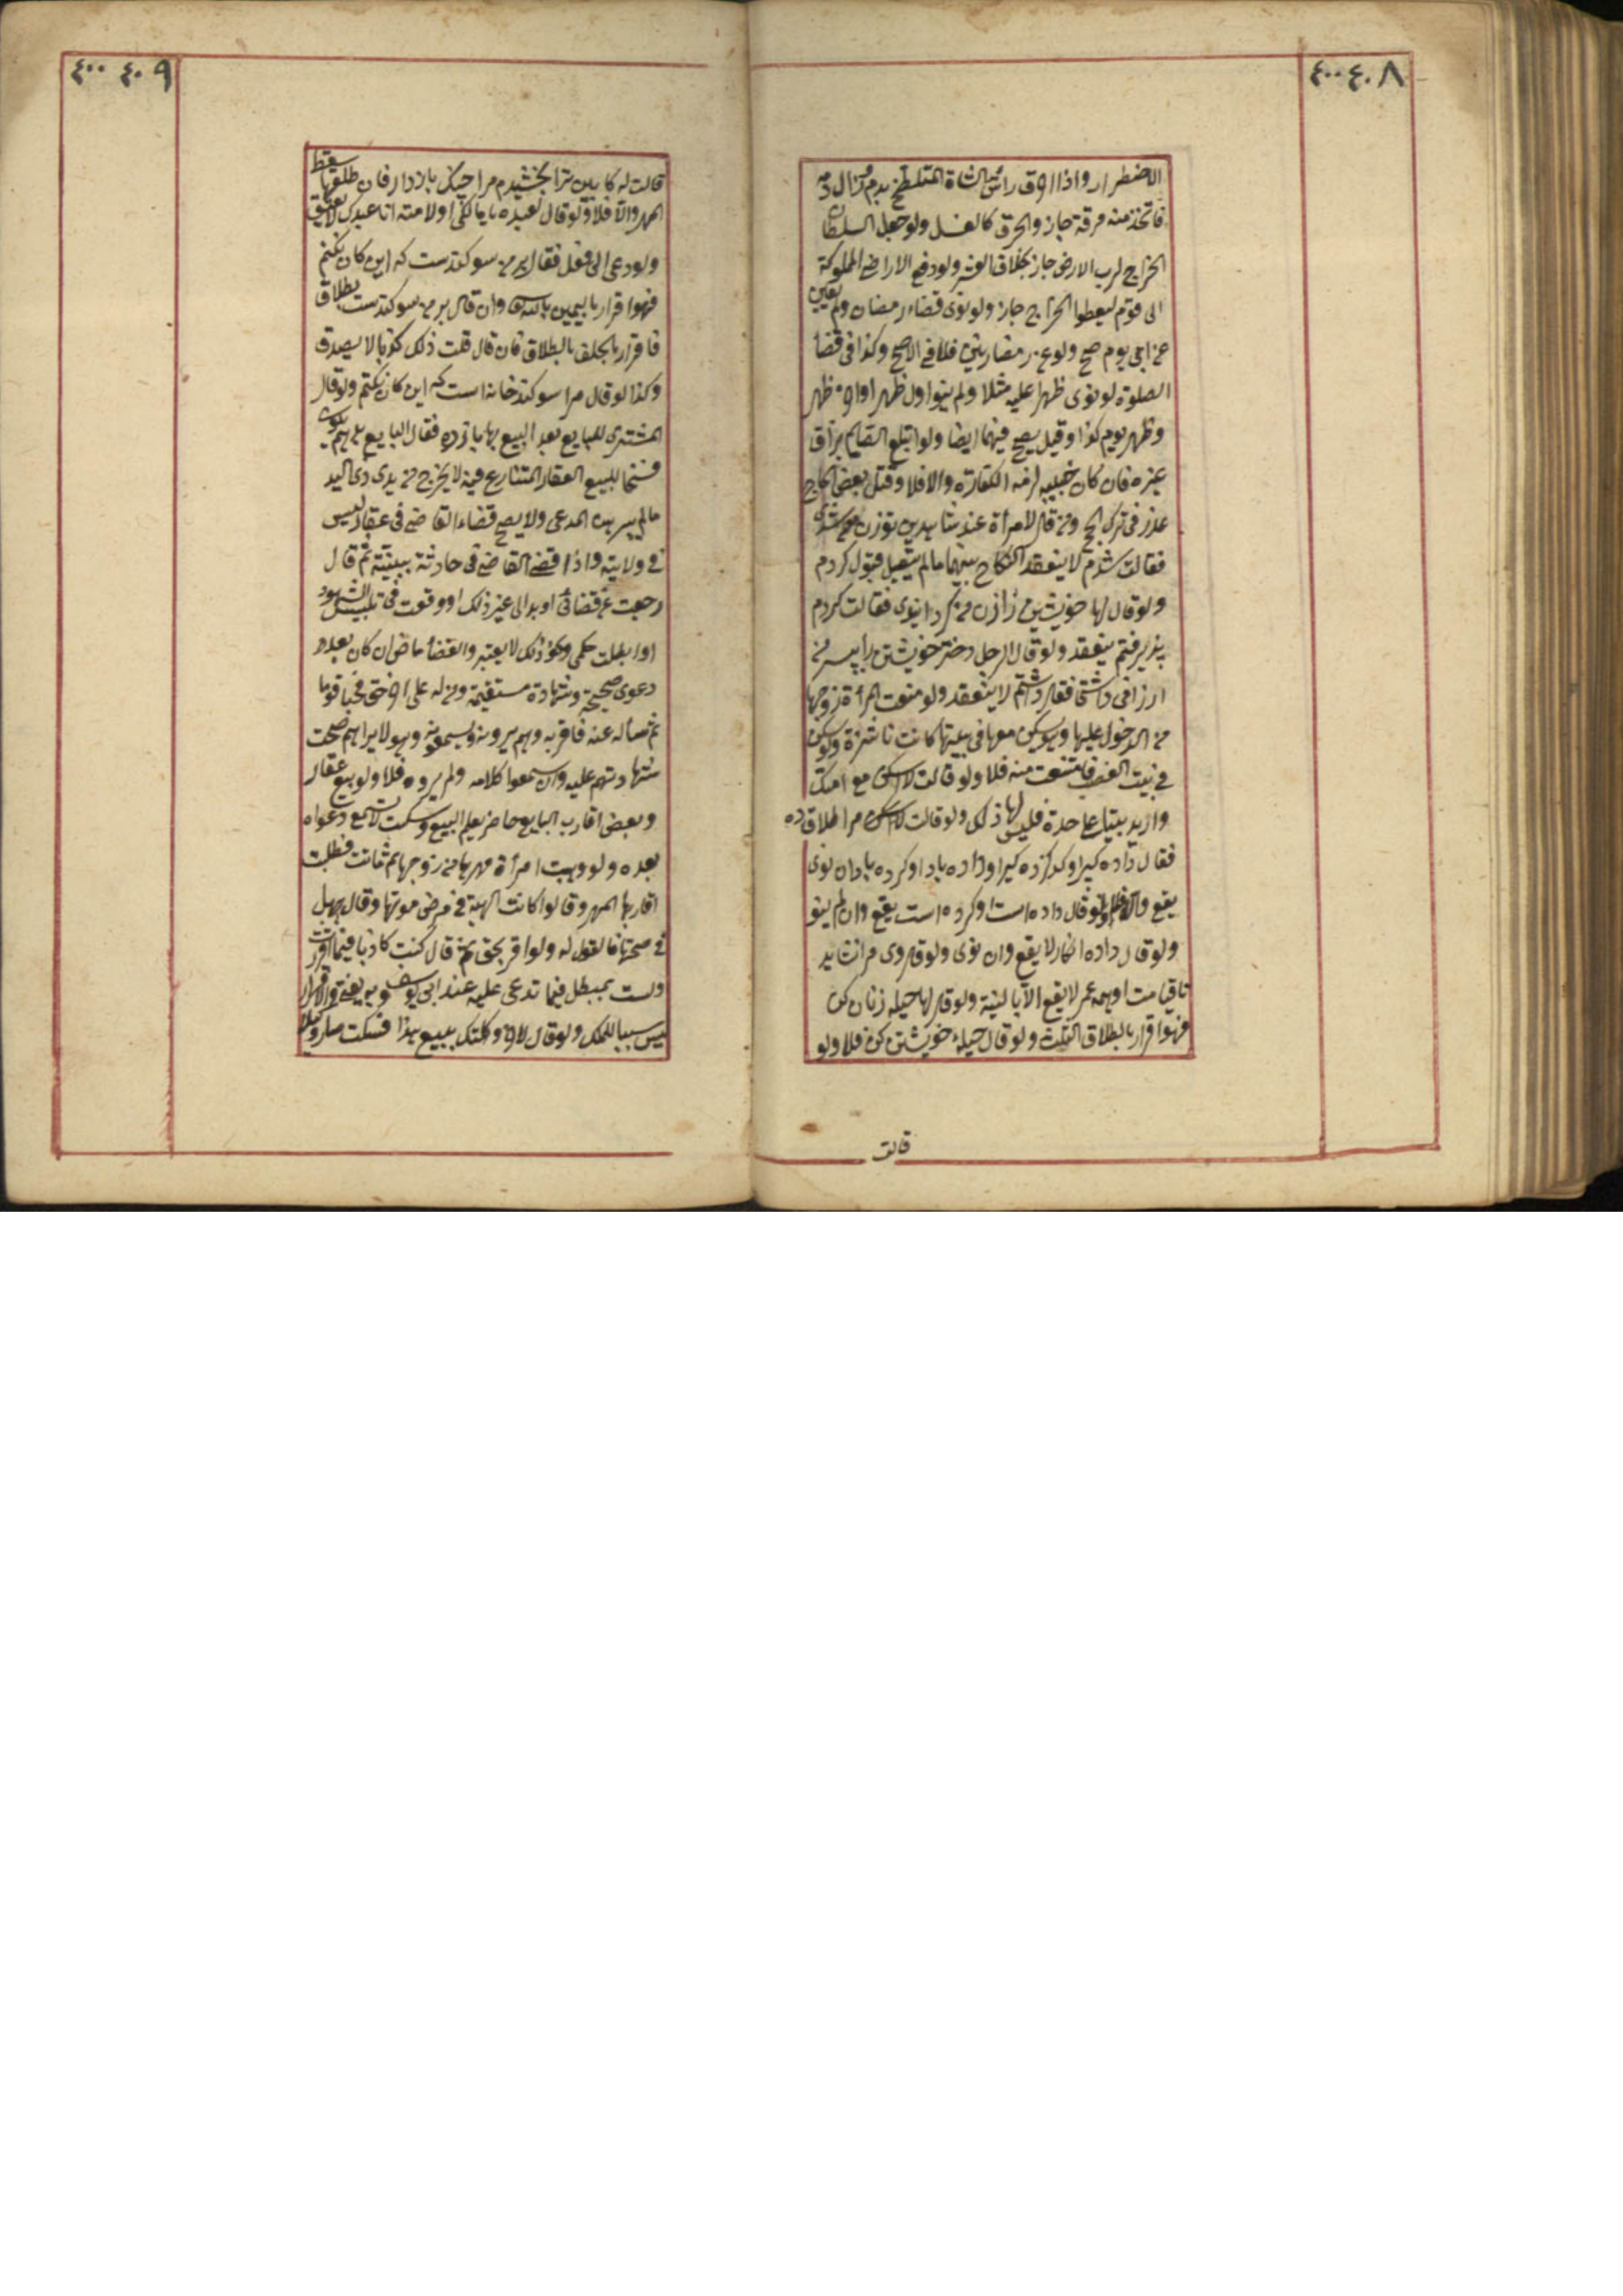 ٤٠٨ ٤٠٠
الاضطرار واذا احرق راس الشاة المتلطخ بدم وزال دمه
فاتخذ منه مرقة جاز والحرق كالغسل ولو جعل السلطان
الخراج لرب الارض جاز بخلاف العشر ولو دفع الاراضي المملوكة
الى قوم ليعطوا الخراج جاز ولو نوى قضاء رمضان ولم يعين
عن اي يوم صح ولو عن رمضانين فلا في الاصح وكذا في قضاء
الصلوة لو نوى ظهرا عليه مثلا ولم ينو اول ظهر او اخر ظهر
وظهر يوم كذا وقيل يصح فيهما ايضا ولو ابتلع الصايم بزاق
غيره فان كان حبيبه لزمه الكفارة والا فلا وقتل بعض الحاج
عذر في ترك الحج ومن قال لامراة عند شاهدين توزن من شدى
فقالت شدم لا ينعقد النكاح بينهما ما لم يقل قبول كردم
ولو قال لها خويشتن را زن من كردانيدى فقالت كردم
پذيرفتم ينعقد ولو قال الرجل دختر خويشتن را بپسر من
ارزانى داشتى فقال داشتم لا ينعقد ولو منعت المراة زوجها
من الدخول عليها وهو يسكن معها في بيتها كانت ناشزة ولو سكن
في بيت الغصب فامتنعت منه فلا ولو قالت لا اسكن مع امتك
واريد بيتا على حدة فليس لها ذلك ولو قالت مرا طلاق ده
فقال داده كير او كرده كير او داده باد او كرده باد ان نوى
يقع والا فلا ولو قال داده است او كرده است يقع وان لم ينو
ولو قال داده انكار لا يقع وان نوى ولو قال وى مرا نشايد
تا قيامت او همه عمر لا يقع الا بالنية ولو قال لها حيله زنان كن
فهو اقرار بالطلاق الثلث ولو قال حيلة خويشتن كن فلا ولو
قالت
٤٠٩ ٤٠٠
قالت له كابين ترا بخشيدم مرا از چنك باز دار فان طلقها سقط
المهر والا فلا ولو قال لعبده يا مالكي او لامته انا عبدك لا يعتق
ولو دعي الى فعل فقال بر من سوكندست كه اين كار نكنم
فهو اقرار باليمين بالله تعالى وان قال بر من سوكندست بطلاق
فاقرار بالحلف بالطلاق فان قال قلت ذلك كذبا لا يصدق
وكذا لو قال مرا سوكند خانه است كه اين كار نكنم ولو قال
المشترى للبايع بعد البيع بها باز ده فقال البايع بدهم يكون
فسخا للبيع العقار المتنازع فيه لا يخرج من يدى ذى اليد
ما لم يبرهن المدعي ولا يصح قضاء القاضي في عقار ليس
في ولايته واذا قضى القاضي في حادثة ببينة ثم قال
رجعت عن قضائي او بدا لي غير ذلك او وقعت في تلبيس الشهود
او ابطلت حكمي ونحو ذلك لا يعتبر والقضاء ماض ان كان بعد
دعوى صحيحة وشهادة مستقيمة ومن له على اخر حق فخبا قوما
ثم ساله عنه فاقر به وهم يرونه ويسمعونه وهو لا يراهم صحت
شهادتهم عليه وان سمعوا كلامه ولم يروه فلا ولو بيع عقار
وبعض اقارب البايع حاضر يعلم البيع وسكت لا تسمع دعواه
بعده ولو وهبت امراة مهرها من زوجها ثم ماتت فطلب
اقاربها المهر وقالوا كانت الهبة في مرض موتها وقال بل
في صحتها فالقول له ولو اقر بحق ثم قال كنت كاذبا فيما اقررت
ولست بمبطل فيما تدعي عليه عند ابي يوسف وبه يفتى والاقرار
ليس سببا للملك ولو قال لاخر وكلتك ببيع هذا فسكت صار وكيلا